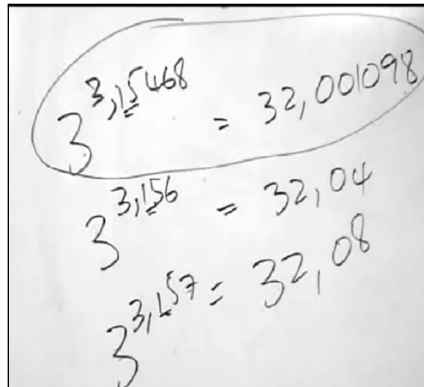 3^3,15468 = 32,001098
3^3,156 = 32,04
3^3,157 = 32,08